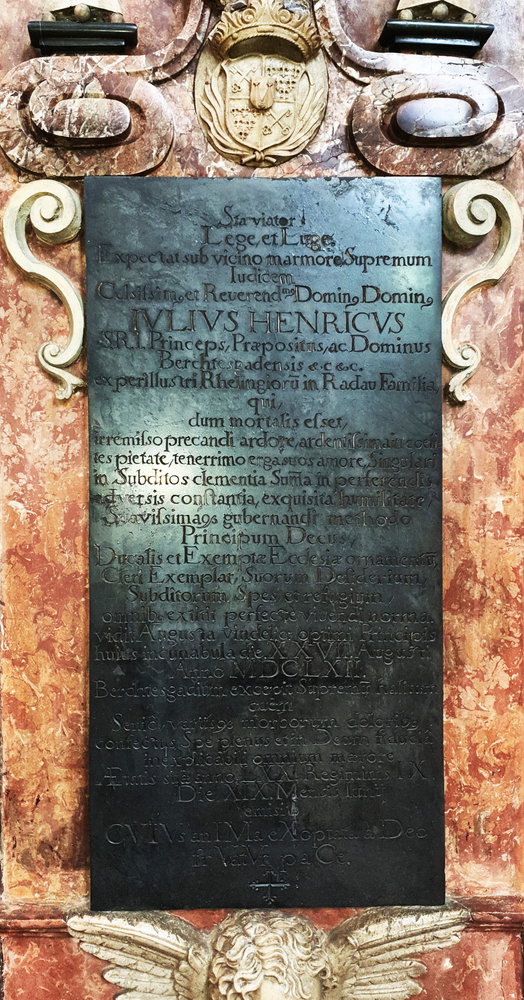 Sta viator
Lege, et Luge,
Expectat sub vicino marmore, Supremum
Iudicem
Celsissim9 et Reverend.mg Domin9 Domin9
IVLIVS HENRICVS
S.R.I. Princeps, Præpositus, ac Dominus
Berchtesgadensis &c&c.
ex perillustri Rhelingiorũ in Radau Familia,
qui,
dum mortalis esset,
irremisso precandi ardore, ardentissima in
tes pietate, tenerrimo erga suos amore, Singulari
in Subditos clementia Sum̃a in perferendis
adversis constantia, exquisita humilitate,
Suavissima9 gubernandi methodo
Principum Decus,
Ducalis et Exemptæ Ecclesiæ ornamentũ,
Cleri Exemplar, Suorum Desiderium,
Subditorum Spes et refugium,
omnib9 eximi perfecte vivendi norma,
vidit Augusta Vindelic: optimi Principis
huius incunabula die XXVIII Augusti
Anno MDCLXII.
Berchtesgadium excepit Supremũ halitum
quem
Senio,
confectus, Spe plenus et in Deum fiducia
inexplicabili omnium mærore
Ætatis suæ anno LXXI Regiminis IX
Die XIX Mensis
emisit
CVIVs anIMa eXoptata a Deo
frVatVr paCe.